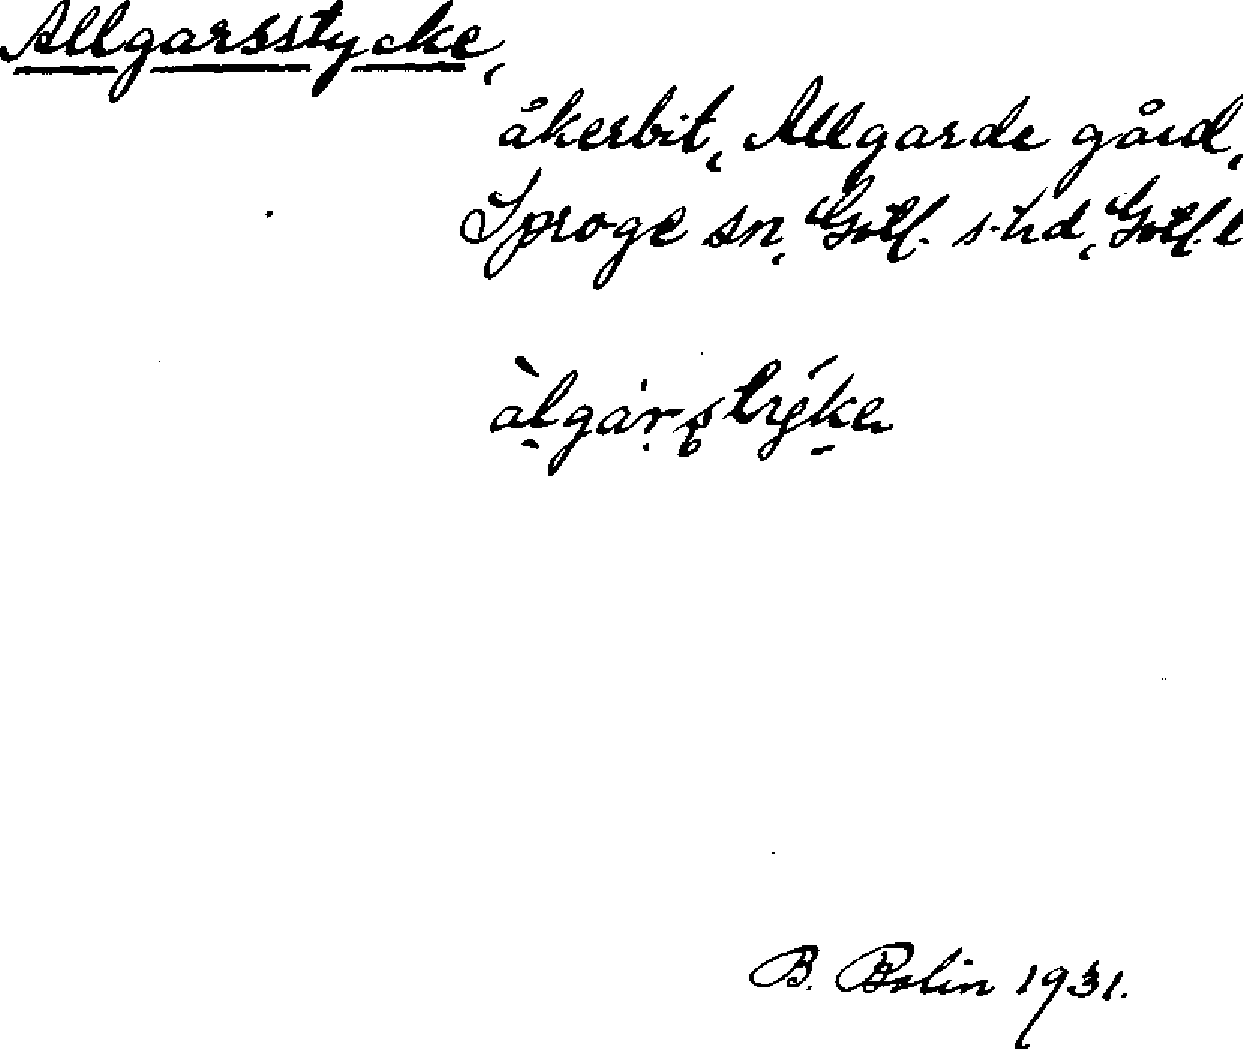 Allgarsstycke,
åkerbit, Allgarde gård,
Sproge sn, Gotl. s. hd, Gotl. l
àlgárstýke
B. Bolin 1931.